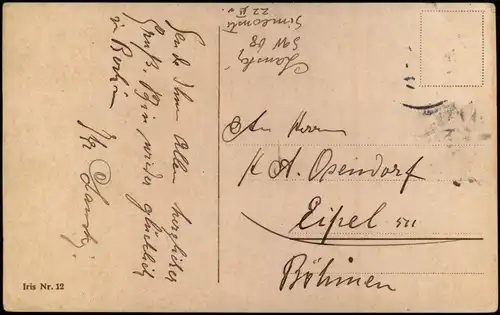 Sende Ihnen Allen herzlichen
Gruß. Bin wieder glücklich
in Berlin
Ihr Landsj.
Landsj,
SW 68
Simeonstr.
22 II r.
An Herrn
K A. Opendorf
Eipel in
Böhmen
Iris Nr. 12